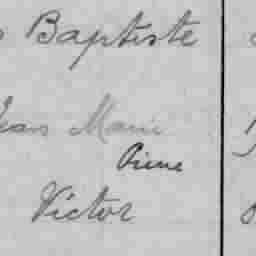 Baptiste
Jean Marie
Pierre
Victor